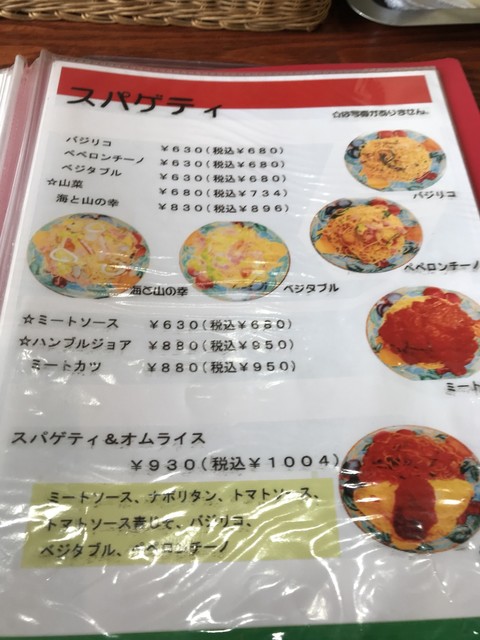 スパゲティ
☆は写真がありません。
バジリコ ¥630(税込¥680)
ペペロンチーノ ¥630(税込¥680)
ベジタブル ¥630(税込¥680)
☆山菜 ¥680(税込¥734)
海と山の幸 ¥830(税込¥896)
バジリコ
ペペロンチーノ
海と山の幸
ベジタブル
☆ミートソース ¥630(税込¥680)
☆ハンブルジョア ¥880(税込¥950)
ミートカツ ¥880(税込¥950)
ミート
スパゲティ&オムライス
¥930(税込¥1004)
ミートソース、ナポリタン、トマトソース、
トマトソース青じそ、バジリコ、
ベジタブル、ペペロンチーノ